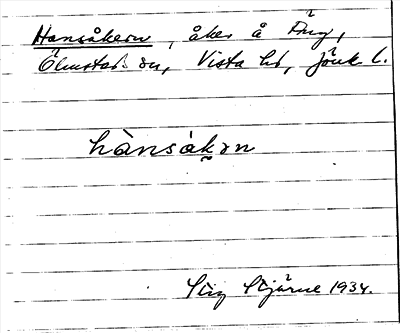 Hansåkern, åker å Äng,
Ölmstad sn, Vista hd, Jönk l.
hànsàkən
Stig Stjärne 1934.